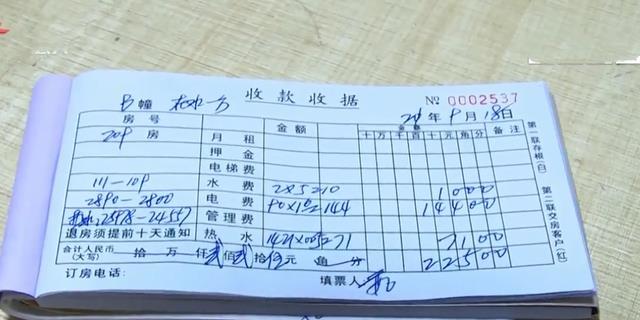 B幢 收款收据 № 0002537
年 9月18日
房号 金额 金额 十万千百十元角分 备注
209 房 月租
押金
电梯费
111-109 水费 2×5=10 1000
2890-2800 电费 144 14400
24557 管理费
退房须提前十天通知 热水 71 7100
合计人民币(大写) 拾 万 仟 贰佰贰拾伍元 角 分 22500
订房电话: 填票人
第一联存根(白)
第二联交房客户(红)